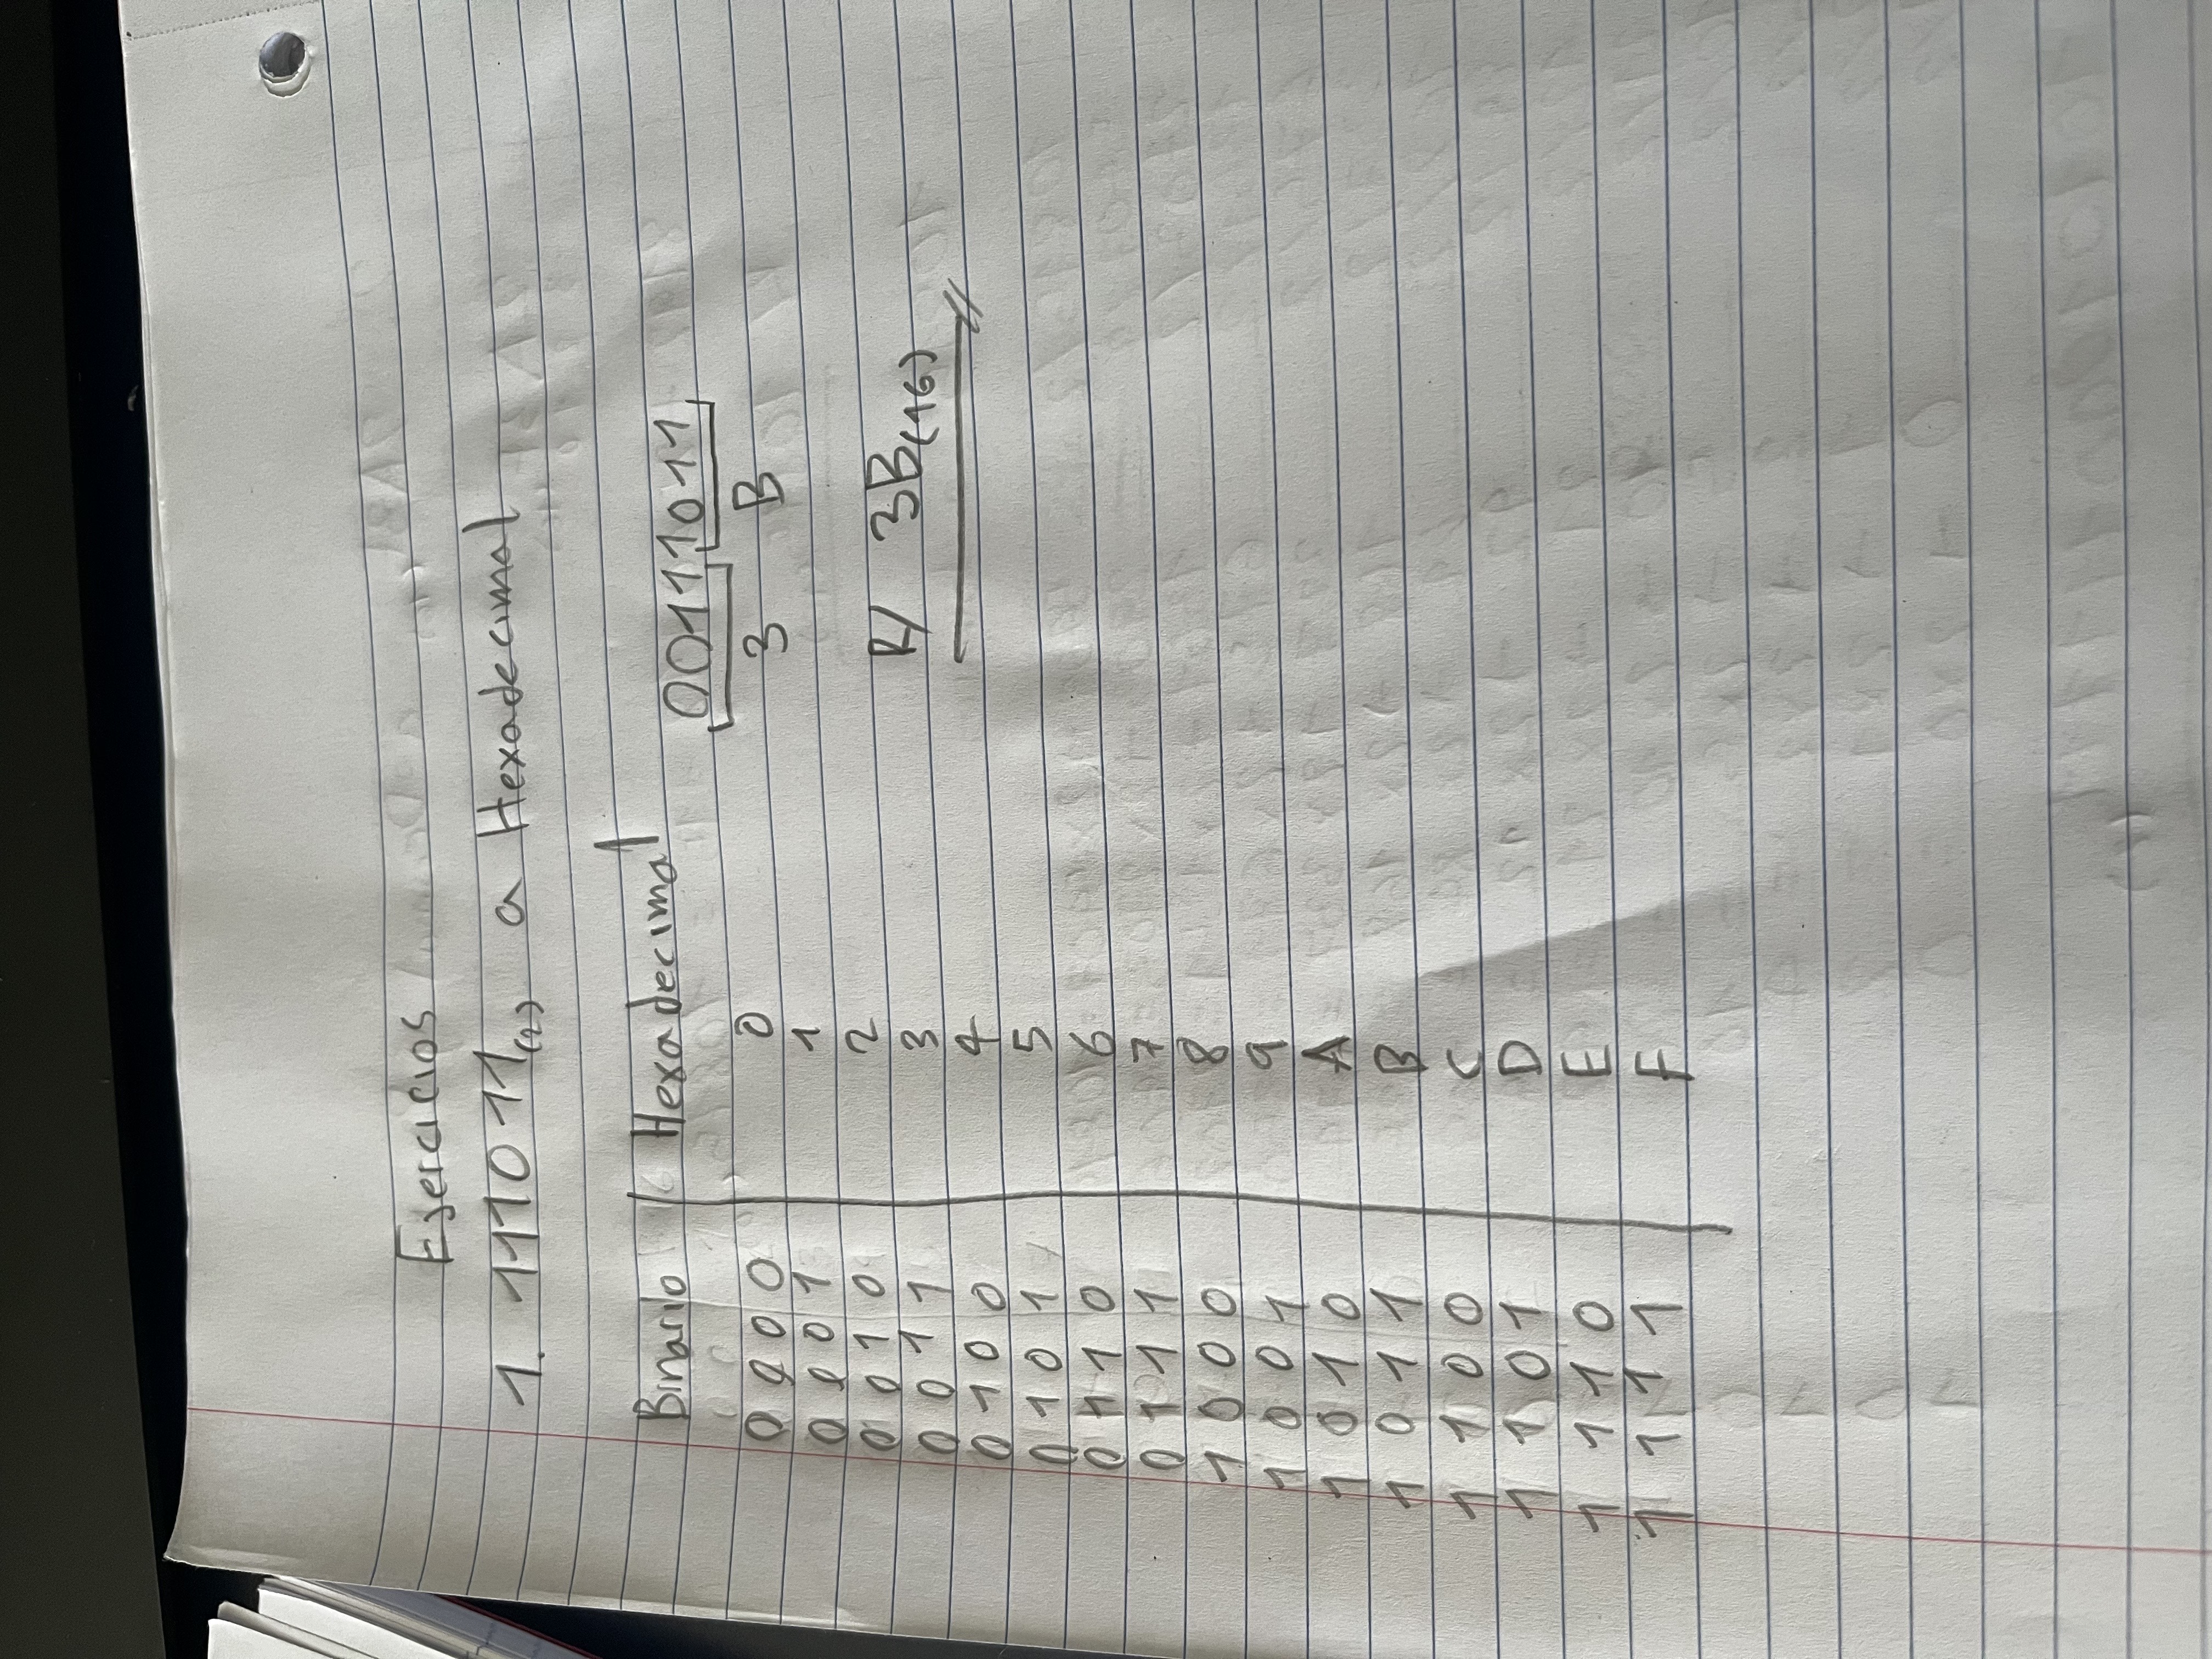 Ejercicios
1. 111011(2) a Hexadecimal
Binario Hexadecimal
00111011
3 B
0 0 0 0 0
0 0 0 1 1
0 0 1 0 2
0 0 1 1 3
0 1 0 0 4
0 1 0 1 5
0 1 1 0 6
0 1 1 1 7
1 0 0 0 8
1 0 0 1 9
1 0 1 0 A
1 0 1 1 B
1 1 0 0 C
1 1 0 1 D
1 1 1 0 E
1 1 1 1 F
R/ 3B(16)